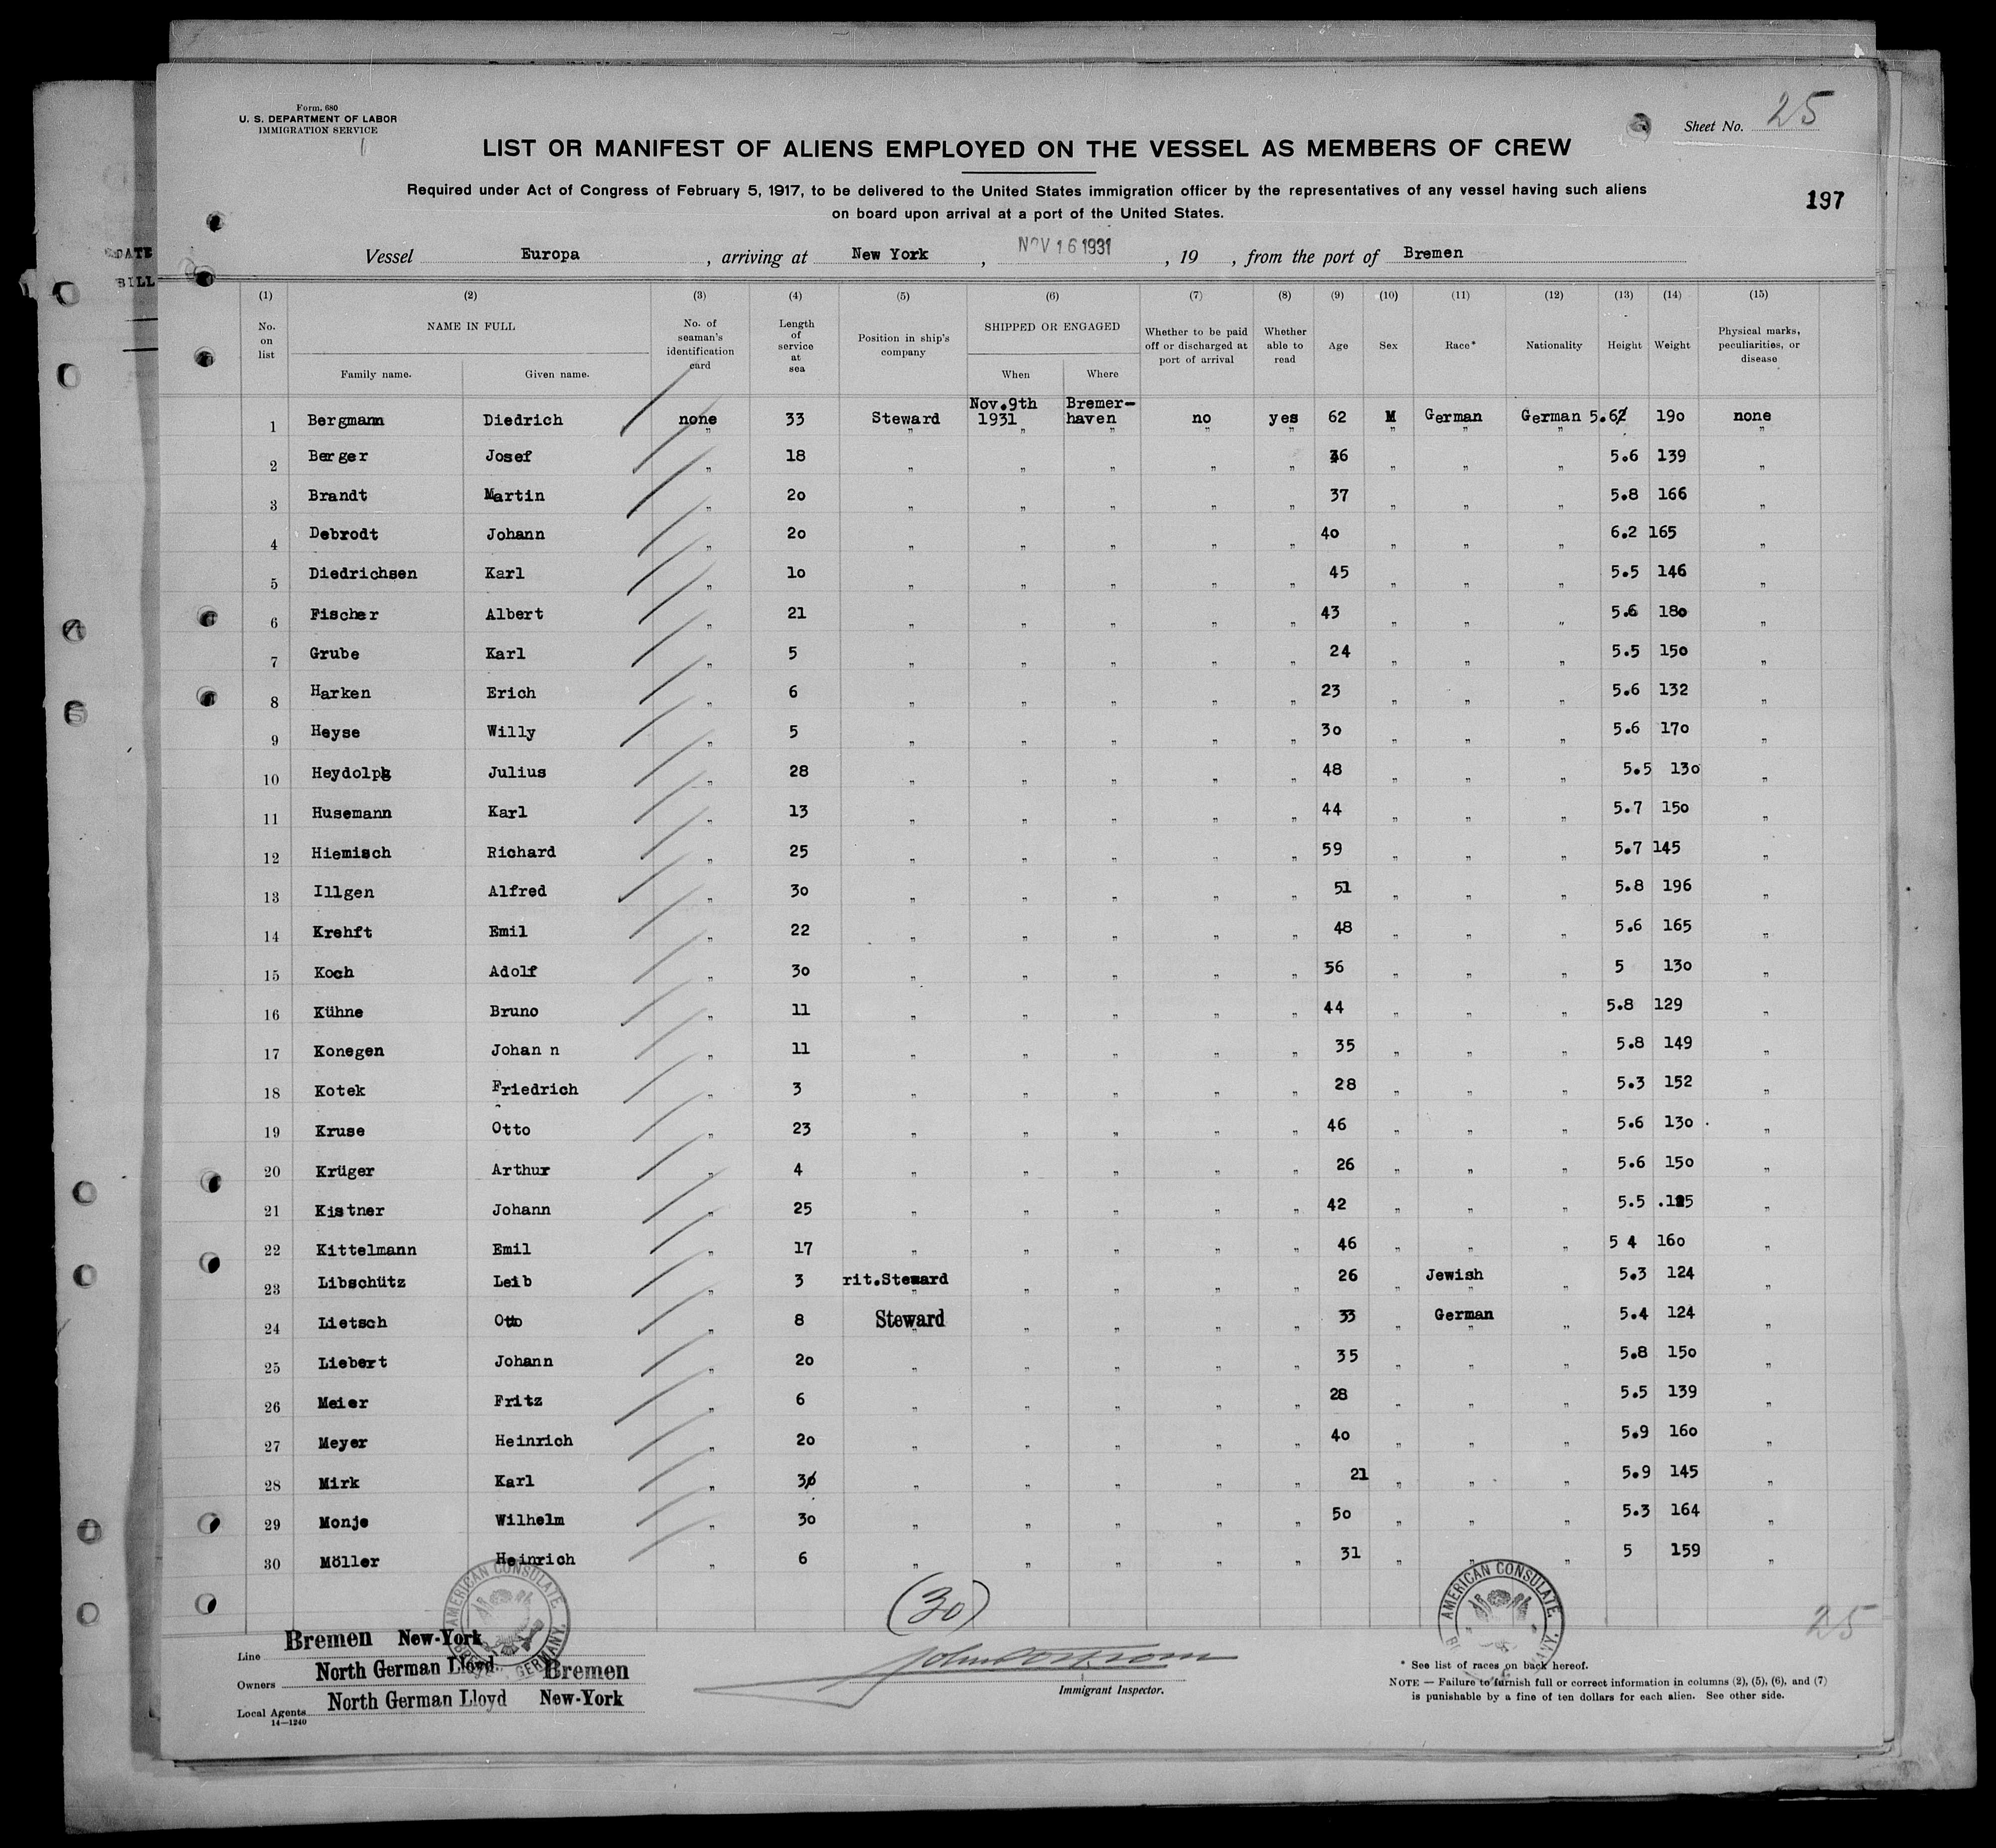 Form. 680
U. S. DEPARTMENT OF LABOR
IMMIGRATION SERVICE
Sheet No. 25
LIST OR MANIFEST OF ALIENS EMPLOYED ON THE VESSEL AS MEMBERS OF CREW
Required under Act of Congress of February 5, 1917, to be delivered to the United States immigration officer by the representatives of any vessel having such aliens
on board upon arrival at a port of the United States.
197
DATE
BILL
Vessel Europa , arriving at New York , NOV 16 1931 , 19 , from the port of Bremen
(1) (2) (3) (4) (5) (6) (7) (8) (9) (10) (11) (12) (13) (14) (15)
No. on list NAME IN FULL Family name. Given name. No. of seaman's identification card Length of service at sea Position in ship's company SHIPPED OR ENGAGED When Where Whether to be paid off or discharged at port of arrival Whether able to read Age Sex Race* Nationality Height Weight Physical marks, peculiarities, or disease
1 Bergmann Diedrich none 33 Steward Nov.9th 1931 Bremer-haven no yes 62 M German German 5.6 190 none
2 Berger Josef " 18 " " " " " 36 " " " 5.6 139 "
3 Brandt Martin " 20 " " " " " 37 " " " 5.8 166 "
4 Debrodt Johann " 20 " " " " " 40 " " " 6.2 165 "
5 Diedrichsen Karl " 10 " " " " " 45 " " " 5.5 146 "
6 Fischer Albert " 21 " " " " " 43 " " " 5.6 180 "
7 Grube Karl " 5 " " " " " 24 " " " 5.5 150 "
8 Harken Erich " 6 " " " " " 23 " " " 5.6 132 "
9 Heyse Willy " 5 " " " " " 30 " " " 5.6 170 "
10 Heydolph Julius " 28 " " " " " 48 " " " 5.5 130 "
11 Husemann Karl " 13 " " " " " 44 " " " 5.7 150 "
12 Hiemisch Richard " 25 " " " " " 59 " " " 5.7 145 "
13 Illgen Alfred " 30 " " " " " 51 " " " 5.8 196 "
14 Krehft Emil " 22 " " " " " 48 " " " 5.6 165 "
15 Koch Adolf " 30 " " " " " 56 " " " 5 130 "
16 Kühne Bruno " 11 " " " " " 44 " " " 5.8 129 "
17 Konegen Johan n " 11 " " " " " 35 " " " 5.8 149 "
18 Kotek Friedrich " 3 " " " " " 28 " " " 5.3 152 "
19 Kruse Otto " 23 " " " " " 46 " " " 5.6 130 "
20 Krüger Arthur " 4 " " " " " 26 " " " 5.6 150 "
21 Kistner Johann " 25 " " " " " 42 " " " 5.5 .125 "
22 Kittelmann Emil " 17 " " " " " 46 " " " 5 4 160 "
23 Libschütz Leib " 3 rit.Steward " " " " 26 " Jewish " 5.3 124 "
24 Lietsch Otto " 8 Steward " " " " 33 " German " 5.4 124 "
25 Liebert Johann " 20 " " " " " 35 " " " 5.8 150 "
26 Meier Fritz " 6 " " " " " 28 " " " 5.5 139 "
27 Meyer Heinrich " 20 " " " " " 40 " " " 5.9 160 "
28 Mirk Karl " 3 " " " " " 21 " " " 5.9 145 "
29 Monje Wilhelm " 30 " " " " " 50 " " " 5.3 164 "
30 Möller Heinrich " 6 " " " " " 31 " " " 5 159 "
(30)
AMERICAN CONSULATE, GERMANY.
AMERICAN CONSULATE.
25
Line Bremen New-York
Owners North German Lloyd Bremen
Local Agents North German Lloyd New-York
14—1240
Immigrant Inspector.
* See list of races on back hereof.
NOTE — Failure to furnish full or correct information in columns (2), (5), (6), and (7)
is punishable by a fine of ten dollars for each alien. See other side.